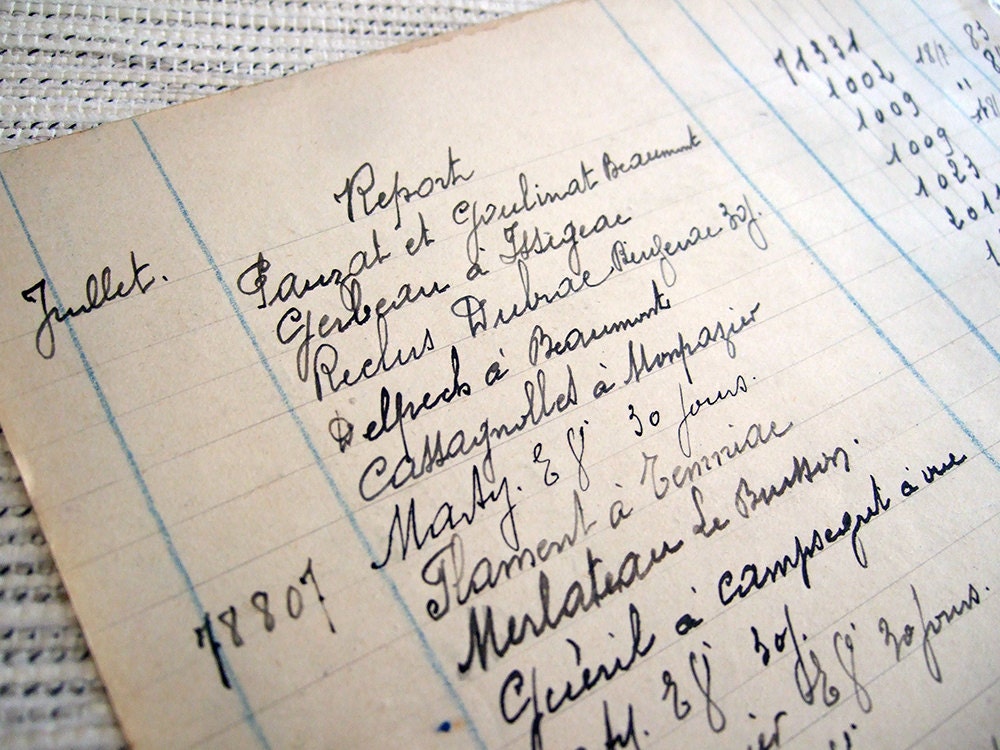 Report 71331 18/7 83
Juillet. Pauzat et Goulinat Beaumont 1002 "
Gerbeau à Issigeac 1009
Reclus Dubrac Bergerac 30j. 1009
Delpech à Beaumont 1023
Cassagnolles à Monpazier
Marty. Ef 30 jours.
Flament à Temniac
78807 Merlateau Le Buisson.
Guéril à Campsegret à vue
Ef 30j.
Ef 30 jours.